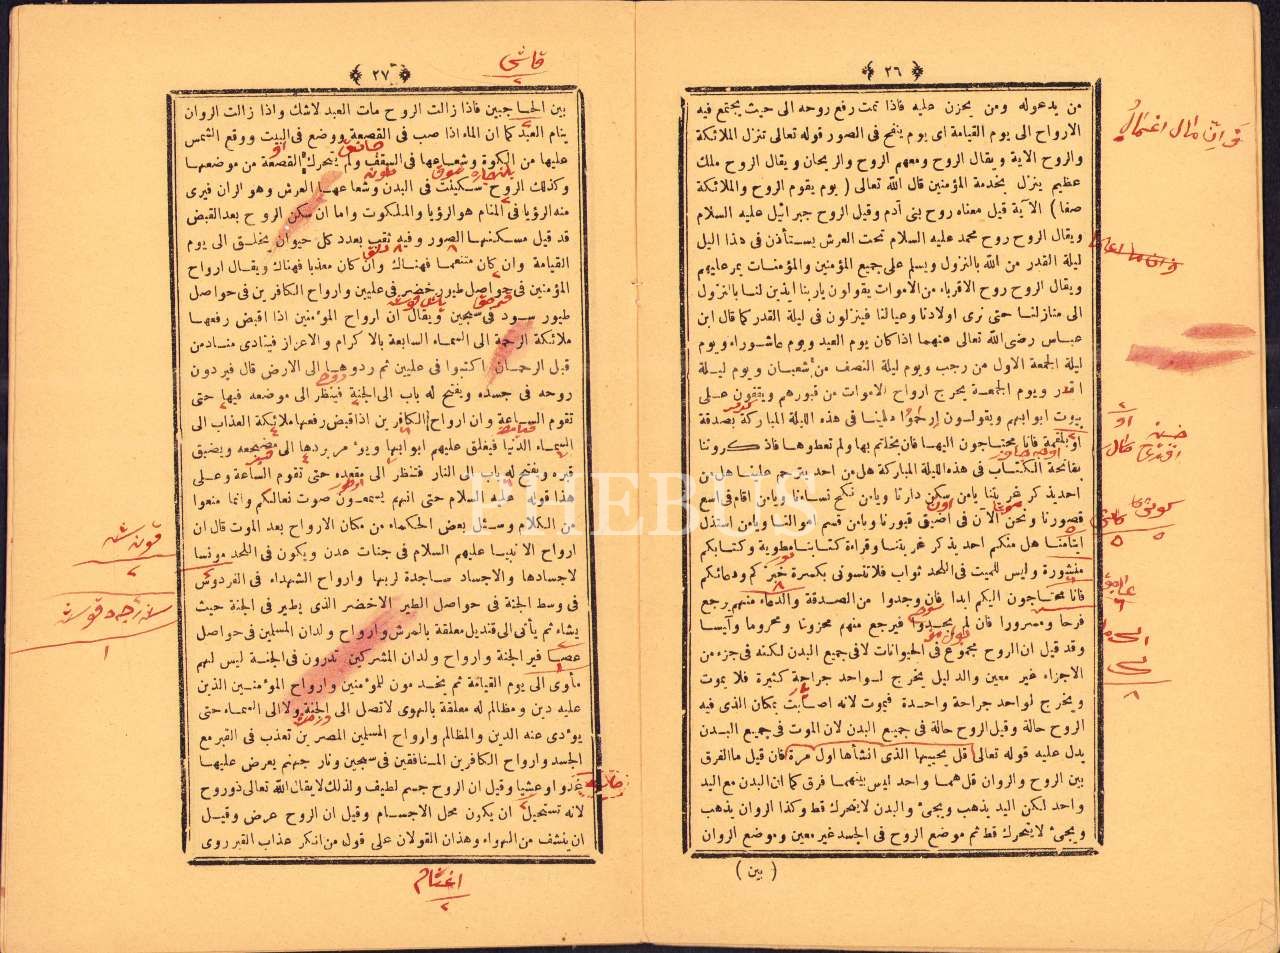 ٢٦
من يدعوله ومن يحزن عليه فاذا تمت رفع روحه الى حيث يجتمع فيه
الارواح الى يوم القيامة اى يوم ينفخ فى الصور قوله تعالى تنزل الملائكة
والروح الاية ويقال الروح ومعهم الروح والريحان ويقال الروح ملك
عظيم ينزل بخدمة المؤمنين قال الله تعالى ( يوم يقوم الروح والملائكة
صفا ) الآية قيل معناه روح بنى آدم وقيل الروح جبرائيل عليه السلام
ويقال الروح روح محمد عليه السلام تحت العرش يستأذن فى هذا الليل
ليلة القدر من الله بالنزول ويسلم على جميع المؤمنين والمؤمنات يمر عليهم
ويقال الروح روح الاقرباء من الاموات يقولون ياربنا ايذن لنا بالنزول
الى منازلنا حتى نرى اولادنا وعيالنا فينزلون فى ليلة القدر كما قال ابن
عباس رضى الله تعالى عنهما اذا كان يوم العيد ويوم عاشوراء ويوم
ليلة الجمعة الاول من رجب ويوم ليلة النصف من شعبان ويوم ليلة
القدر ويوم الجمعة يخرج ارواح الاموات من قبورهم ويقفون على
بيوت ابوابهم ويقولون ارحموا علينا فى هذه الليلة المباركة بصدقة
او بلقمة فانا محتاجون اليها فان بخلتم بها ولم تعطوها فاذكروننا
بفاتحة الكتاب فى هذه الليلة المباركة هل من احد يترحم علينا هل من
احد يذكر غربتنا يامن سكن دارنا ويامن نكح نساءنا ويامن اقام فى اسع
قصورنا ونحن الآن فى اضيق قبورنا ويامن قسم اموالنا ويامن استذل
ايتامنا هل منكم احد يذكر غربتنا وقراءة كتابنا مطوية وكتابكم
منشورة وليس للميت فى اللحد ثواب فلا تنسونى بكسرة خبزكم ودعائكم
فانا محتاجون اليكم ابدا فان وجدوا من الصدقة والدعاء منهم رجع
فرحا ومسرورا فان لم يجدوا فيرجع منهم محزونا ومحروما وآيسا
وقد قيل ان الروح مجموع فى الحيوانات لا فى جميع البدن لكنه فى جزء من
الاجزاء غير معين والدليل يخرج لواحد جراحة كثيرة فلا يموت
ويخرج لواحد جراحة واحدة فيموت لانه اصابت بمكان الذى فيه
الروح حالة وقيل الروح حالة فى جميع البدن لان الموت فى جميع البدن
يدل عليه قوله تعالى قل يحييها الذى انشأها اول مرة فان قيل ما الفرق
بين الروح والروان قل هما واحد ليس بينهما فرق كما ان البدن مع اليد
واحد لكن اليد يذهب ويجئ والبدن لا يتحرك قط وكذا الروان يذهب
ويجئ لا يتحرك قط ثم موضع الروح فى الجسد غير معين وموضع الروان
( بين )
٢٧
بين الحاجبين فاذا زالت الروح مات العبد لاشك واذا زالت الروان
ينام العبد كما ان الماء اذا صب فى القصعة ووضع فى البيت ووقع الشمس
عليها من الكوة وشعاعها فى السقف ولم يتحرك القصعة من موضعها
وكذلك الروح سكينت فى البدن وشعاعها العرش وهو الران فيرى
منه الرؤيا فى المنام هو الرؤيا والملكوت واما ان سكن الروح بعد القبض
قد قيل مسكنها الصور وفيه ثقب بعدد كل حيوان يخلق الى يوم
القيامة وان كان متنعما فهناك وان كان معذبا فهناك ويقال ارواح
المؤمنين فى حواصل طيور خضر فى عليين وارواح الكافرين فى حواصل
طيور سود فى سجين ويقال ان ارواح المؤمنين اذا اقبض رفعها
ملائكة الرحمة الى السماء السابعة بالاكرام والاعزاز فينادى مناد من
قبل الرحمان اكتبوا فى عليين ثم ردوها الى الارض قال فيردون
روحه فى جسده ويفتح له باب الى الجنة فينظر الى موضعه فيها حتى
تقوم الساعة وان ارواح الكافرين اذا قبض رفعها ملائكة العذاب الى
السماء الدنيا فيغلق عليهم ابوابها ويؤمر بردها الى مضجعه ويضيق
قبره ويفتح له باب الى النار فتنظر الى مقعده حتى تقوم الساعة وعلى
هذا قوله عليه السلام حتى انهم يسمعون صوت نعالكم وانما منعوا
من الكلام وسئل بعض الحكماء من مكان الارواح بعد الموت قال ان
ارواح الانبيا عليهم السلام فى جنات عدن ويكون فى اللحد مونسا
لاجسادها والاجساد ساجدة لربها وارواح الشهداء فى الفردوس
فى وسط الجنة فى حواصل الطير الاخضر الذى يطير فى الجنة حيث
يشاء ثم يأتى الى قنديل معلقة بالعرش وارواح ولدان المسلمين فى حواصل
عصافير الجنة وارواح ولدان المشركين تدرون فى الجنة ليس لهم
مأوى الى يوم القيامة ثم يخدمون للمؤمنين وارواح المؤمنين الذين
عليه دين ومظالم له معلقة بالهوى لاتصل الى الجنة ولا الى السماء حتى
يؤدى عنه الدين والمظالم وارواح المسلمين المصرين تعذب فى القبر مع
الجسد وارواح الكافرين المنافقين فى سجين ونار جهنم يعرض عليها
غدوا وعشيا وقيل ان الروح جسم لطيف ولذلك لايقال الله تعالى ذو روح
لانه تستحيل ان يكون محل الاجسام وقيل ان الروح عرض وقيل
ان ينشف من الهواء وهذان القولان على قول من انكر عذاب القبر روى
PHEBUS